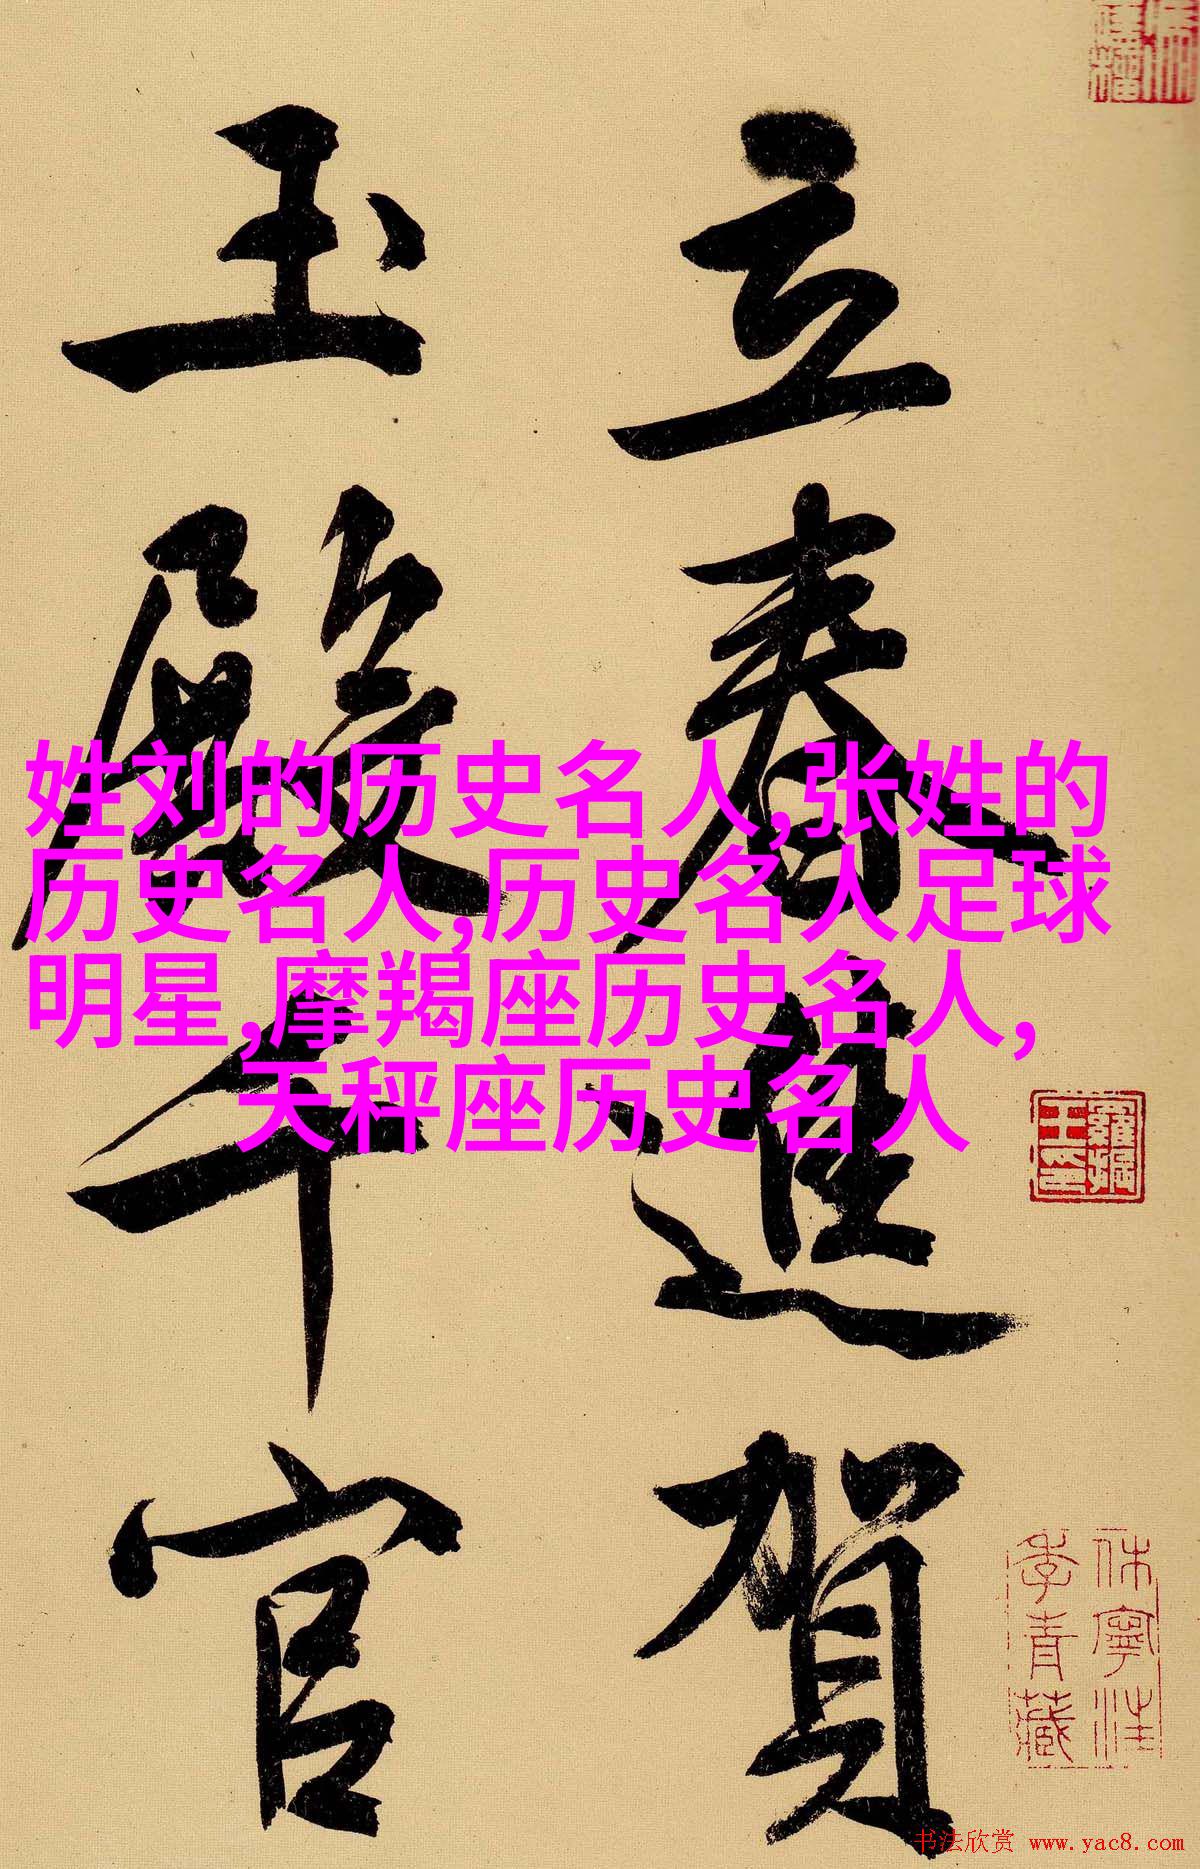 立春進賀
玉殿千官
姓刘的历史名人,张姓的
历史名人,历史名人足球
明星,摩羯座历史名人,
天秤座历史名人
季青藏
书法欣赏 www.yac8.com